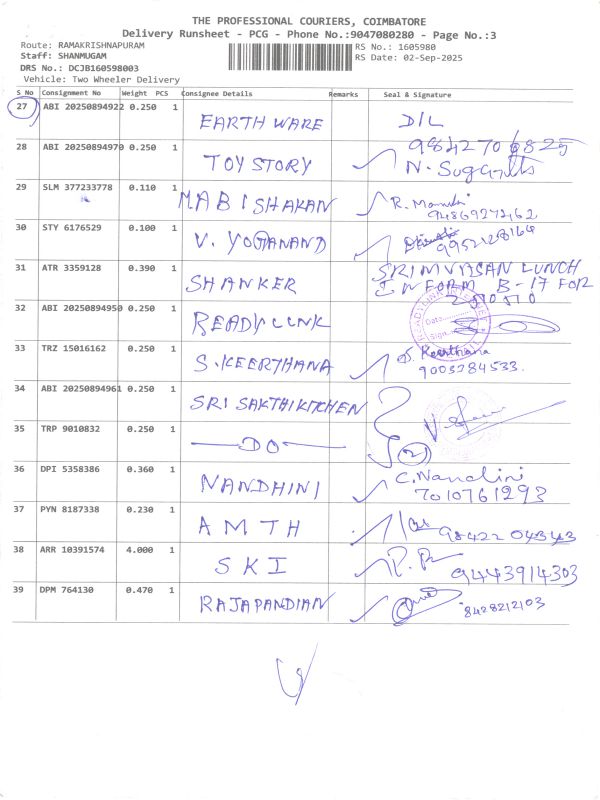 THE PROFESSIONAL COURIERS, COIMBATORE
Delivery Runsheet - PCG - Phone No.:9047080280 - Page No.:3
Route: RAMAKRISHNAPURAM
Staff: SHANMUGAM
DRS No.: DCJB160598003
Vehicle: Two Wheeler Delivery
RS No.: 1605980
RS Date: 02-Sep-2025
S_No Consignment No Weight PCS Consignee Details Remarks Seal & Signature
27 ABI 20250894922 0.250 1 EARTH WARE D/L
28 ABI 20250894970 0.250 1 TOY STORY
29 SLM 377233778 0.110 1 MABISHAKAN
30 STY 6176529 0.100 1 V. YOGANAND 9952128164
31 ATR 3359128 0.390 1 SHANKER LUNCH
INFORM B-17 FOR
32 ABI 20250894950 0.250 1 Date
Sign
33 TRZ 15016162 0.250 1 S.KEERTHANA S. Keerthana
9003284533.
34 ABI 20250894961 0.250 1 SRI SAKTHI KITCHEN
35 TRP 9010832 0.250 1 DO 2
36 DPI 5358386 0.360 1 NANDHINI C. Nandini
7010761293
37 PYN 8187338 0.230 1 AMTH 98422 04343
38 ARR 10391574 4.000 1 SKI 9443914303
39 DPM 764130 0.470 1 RAJAPANDIAN 8428212103